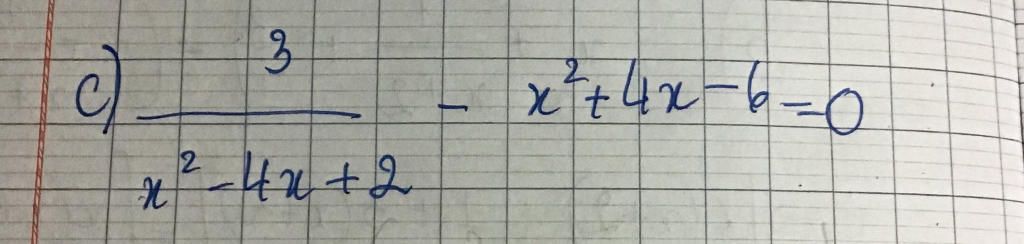 c) 3 / x² - 4x + 2 - x² + 4x - 6 = 0